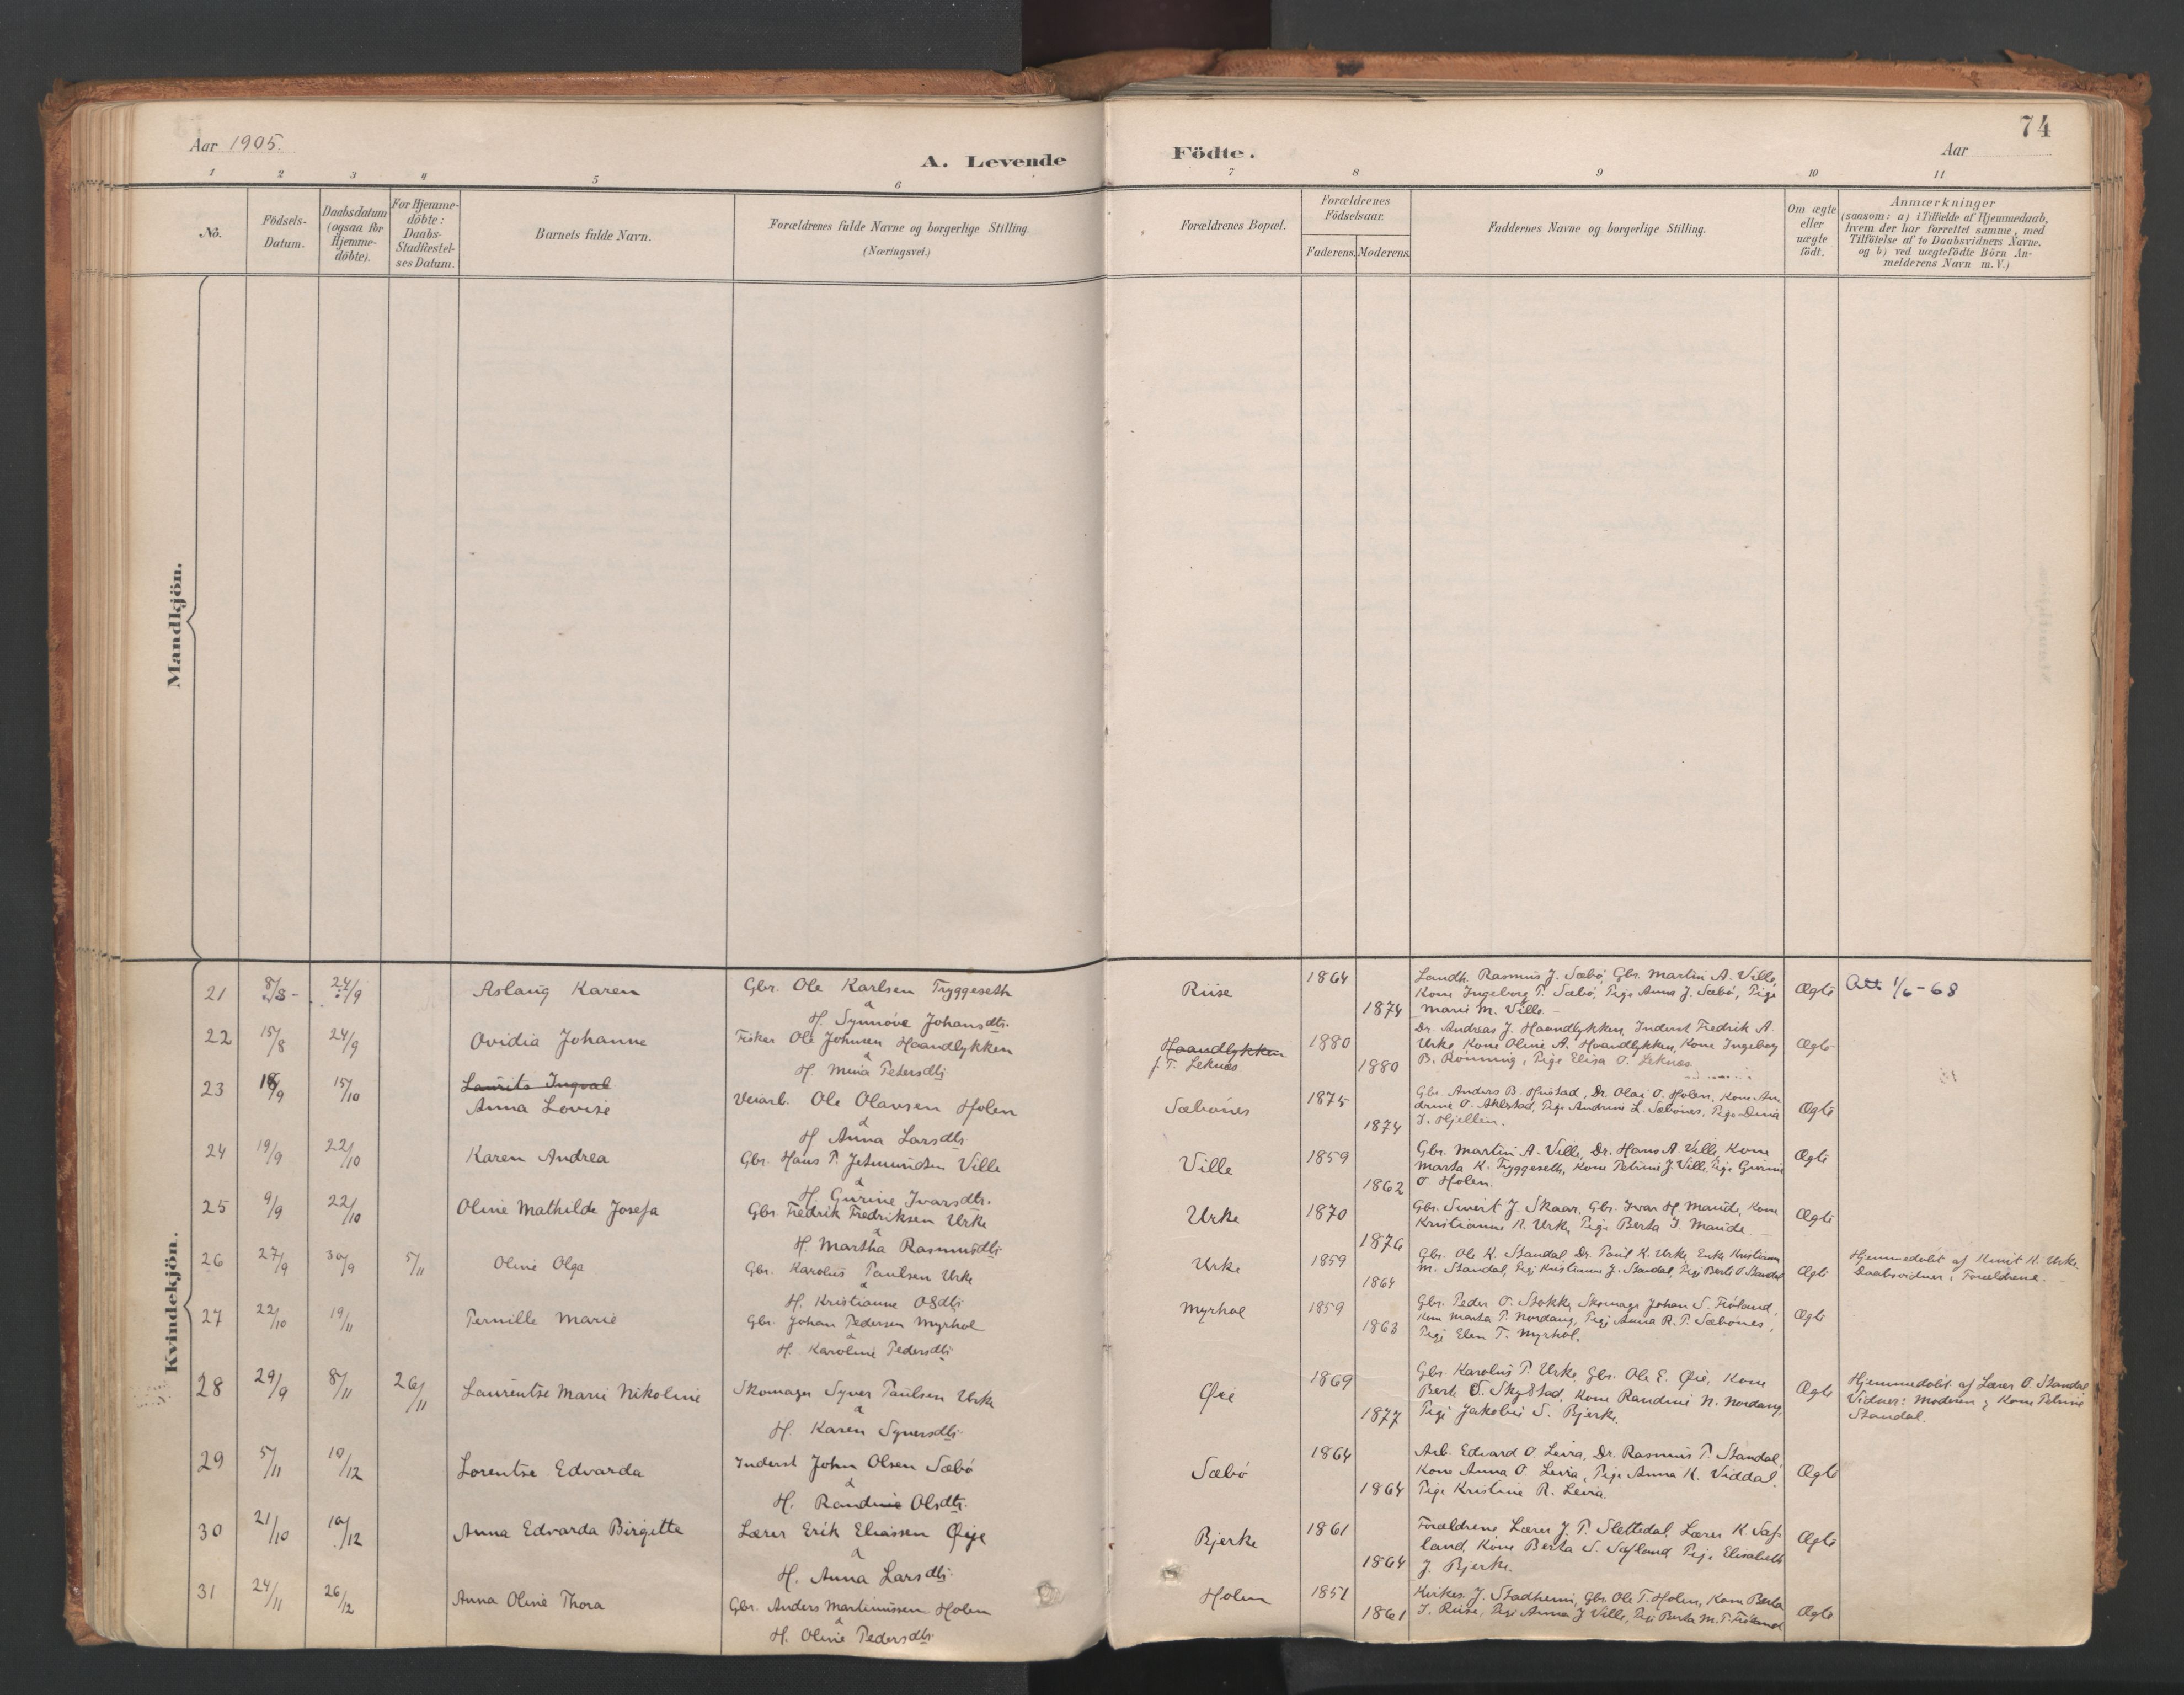 74
Aar 1905.
A. Levende
Födte.
Aar
1 2 3 4 5 6
7 8 9 10 11
No.
Födsels-
Datum.
Daabsdatum
(ogsaa for
Hjemme-
döbte).
For Hjemme-
döbte:
Daabs-
Stadfæstel-
ses Datum.
Barnets fulde Navn.
Forældrenes fulde Navne og borgerlige Stilling.
(Næringsvei.)
Forældrenes Bopæl.
Forældrenes
Födselsaar.
Faderens.
Moderens.
Faddernes Navne og borgerlige Stilling.
Om ægte
eller
uægte
födt.
Anmærkninger
(saasom: a) i Tilfælde af Hjemmedaab,
hvem der har forrettet samme, med
Tilföielse af to Daabsvidners Navne.
og b) ved uægtefödte Börn An-
melderens Navn m. V.)
Mandkjön.
Kvindekjön.
21 8/8 - 24/9 Aslaug Karen
Gbr. Ole Karlsen Tryggeseth
&
H. Synnöve Johansdtr.
Riise 1864
1874
Landh. Rasmus J. Sæbö, Gbr. Martin A. Ville,
Kone Ingeborg P. Sæbö, Pige Anna J. Sæbö, Pige
Marie M. Ville.
Ægte
Att 1/6-68
22 15/8 24/9 Ovidia Johanne
Fisker Ole Johnsen Haandlykken
&
H. Mina Petersdtr
Haandlykken
f. T. Leknes
1880
1880
Dr. Andreas J. Haandlykken, Inderst Fredrik A.
Urke, Kone Oline A. Haandlykken, Kone Ingeborg
B. Rönning, Pige Elisa O. Leknes.
Ægte
23 18/9 15/10 Laurits Ingval
Anna Lovise
Veiarb. Ole Olavsen Holen
&
H Anna Larsdtr.
Sæbönes 1875
1874
Gbr. Anders B. Hustad, Dr. Olai O. Holen, Kone An-
drine O. Aklestad, Pige Andrine L. Sæbönes, Pige Dina
J. Hjellen.
Ægte
24 19/9 22/10 Karen Andrea
Gbr. Hans P. Jetmundsen Ville
&
H. Gurine Ivarsdtr.
Ville 1859
1862
Gbr. Martin A. Ville, Dr. Hans A. Ville, Kone
Marta K. Tryggeseth, Kone Petrine J. Ville, Pige Gurine
O. Holen.
Ægte
25 9/9 22/10 Oline Mathilde Josefa
Gbr. Fredrik Fredriksen Urke
&
H. Martha Rasmusdtr
Urke 1870
1876
Gbr. Sivert J. Skaar, Gbr. Ivar H. Maude, Kone
Kristianne K. Urke, Pige Berta J. Maude.
Ægte
26 27/9 30/9 5/11 Oline Olga
Gbr. Karolus Paulsen Urke
&
H. Kristianne Olsdtr
Urke 1859
1864
Gbr. Ole K. Standal, Dr. Paul K. Urke, Enke Kristianne
M. Standal, Pige Kristianne J. Standal, Pige Berte O. Standal
Ægte
Hjemmedöbt af Knut K. Urke.
Daabsvidner: Forældrene.
27 22/10 19/11 Pernille Marie
Gbr. Johan Pedersen Myrhol
&
H. Karoline Pedersdtr
Myrhol 1859
1863
Gbr. Peder O. Stokke, Skomager Johan S. Fröland,
Kone Marta P. Nordang, Pige Anna R. P. Sæbönes,
Pige Elen T. Myrhol.
Ægte
28 29/9 8/11 26/11 Laurentse Marie Nikoline
Skomager Syver Paulsen Urke
&
H. Karen Syversdtr
Øie 1869
1877
Gbr. Karolus P. Urke, Gbr. Ole E. Øie, Kone
Berte S. Skylstad, Kone Randine N. Nordang,
Pige Jakobie S. Bjerke.
Ægte
Hjemmedöbt af Lærer O. Standal
Vidner: Moderen & Kone Petrine
Standal.
29 5/11 10/12 Lorentse Edvarda
Inderst John Olsen Sæbö
&
H. Randine Olsdtr.
Sæbö 1864
1864
Arb. Edvard O. Leira, Dr. Rasmus P. Standal,
Kone Anna O. Leira, Pige Anna K. Viddal,
Pige Kristine R. Leira.
Ægte
30 21/10 10/12 Anna Edvarda Birgitte
Lærer Erik Eliassen Øije
&
H. Anna Larsdtr
Bjerke 1861
1864
Forældrene, Lærer J. P. Slettedal, Lærer K. Saf-
land, Kone Berta S. Safland, Pige Elisabeth
J. Bjerke.
Ægte
31 24/11 26/12 Anna Oline Thora
Gbr. Anders Martinussen Holen
&
H. Oline Pedersdtr
Holen 1851
1861
Kirkes. J. Stadheim, Gbr. Ole T. Holen, Kone Berta
J. Riise, Pige Anna J. Ville, Pige Berta M. P. Fröland
Ægte